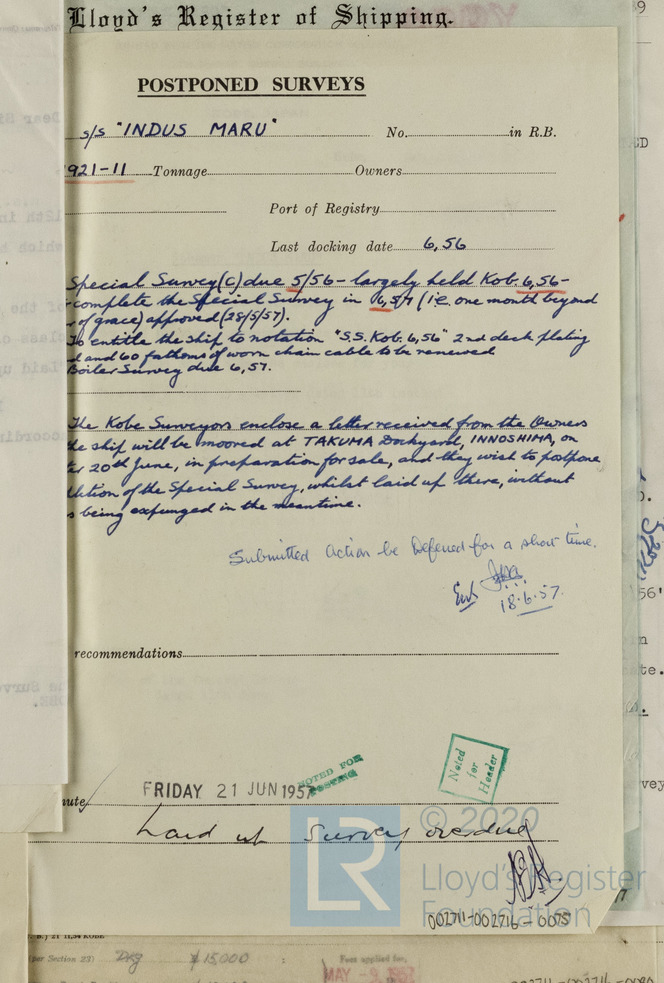 Lloyd's Register of Shipping.
POSTPONED SURVEYS
s/s "INDUS MARU" No. in R.B.
921-11 Tonnage Owners
Port of Registry
Last docking date 6,56
Special Survey (C) due 5/56 - largely held Kob. 6,56 -
complete the Special Survey in 6,57 (i.e. one month beyond
of grace) approved (28/5/57).
To entitle the ship to notation "S.S. Kob. 6,56" 2nd deck plating
and 60 fathoms of worn chain cable to be renewed
Boiler Survey due 6,57.
The Kobe Surveyors enclose a letter received from the Owners
the ship will be moored at TAKUMA Dockyard, INNOSHIMA, on
20th June, in preparation for sale, and they wish to postpone
of the Special Survey, whilst laid up there, without
being expunged in the meantime.
Submitted Action be Deferred for a short time.
18.6.57.
recommendations
FRIDAY 21 JUN 1957
NOTED FOR
POSTING
Noted
for
Header
Laid up Survey overdue
© 2020
LR
Lloyd's Register
Foundation
002711-002716-0075
(per Section 23) Dkg $15,000 Fees applied for,
MAY - 9 1957